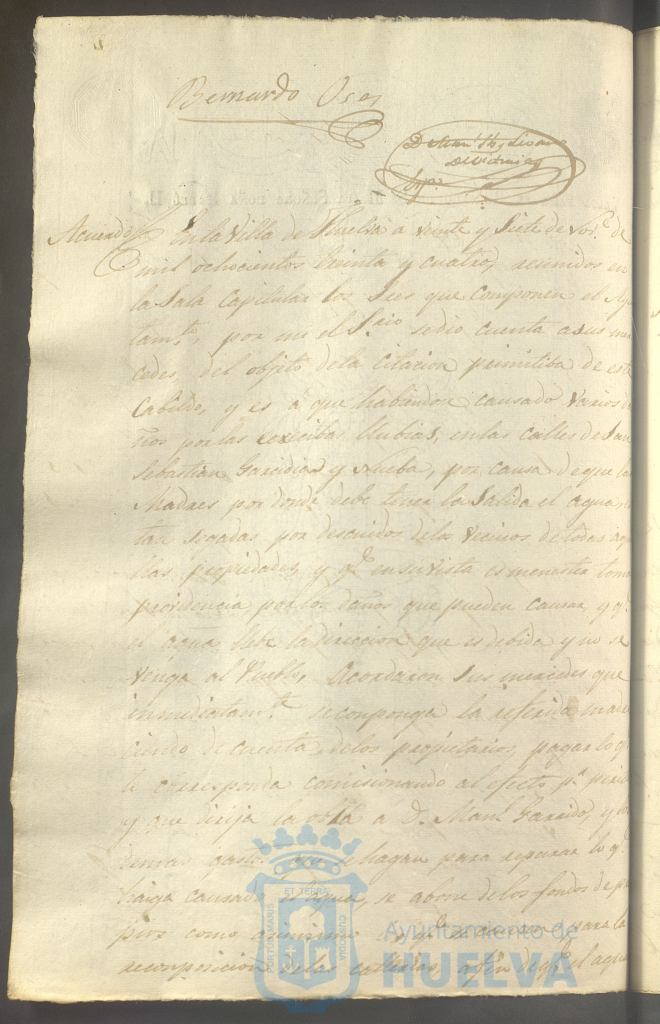 Bernardo Oses
Acuerdo
En la Villa de Huelva a veinte y Siete de Nov.e de
mil ochocientos treinta y cuatro, reunidos en
la Sala Capitular los Sres que componen el Ayu
tam.to, por mi el S.rio se dio cuenta a sus mer
cedes, del objeto de la Citacion primitiba de este
Cabildo, y es a que habiendose causado varios da
ños por las execibas llubias, en las calles de San
Sebastian Garcidias y Nueba, por causa de que las
Madres por donde debe tener la Salida el agua, es
tan segadas por descuidos de los Vecinos de todas aque
llas propiedades, y q.e en su vista es menester tomar
providencia por los daños que pueden causar, y q.e
el agua llebe la direccion que es debida y no se
venga al Pueblo, Acordaron Sus mercedes que
inmediatam.te se conponga la referida madre
ciendo de cuenta de los propietarios, pagar lo q.e
le corresponda comisionando al efecto p.a perito
y que dirija la obra á D. Man.l Garrido, y los
demas gastos que se hagan para reparar lo q.e
haiga causado el agua, se abone de los fondos de pro
pios como asimismo q.e se para la
reconposicion de las calles a fin de q.e el agua
ET TERRA
PORTUS MARIS
CUSTODIA
Ayuntamiento de
HUELVA